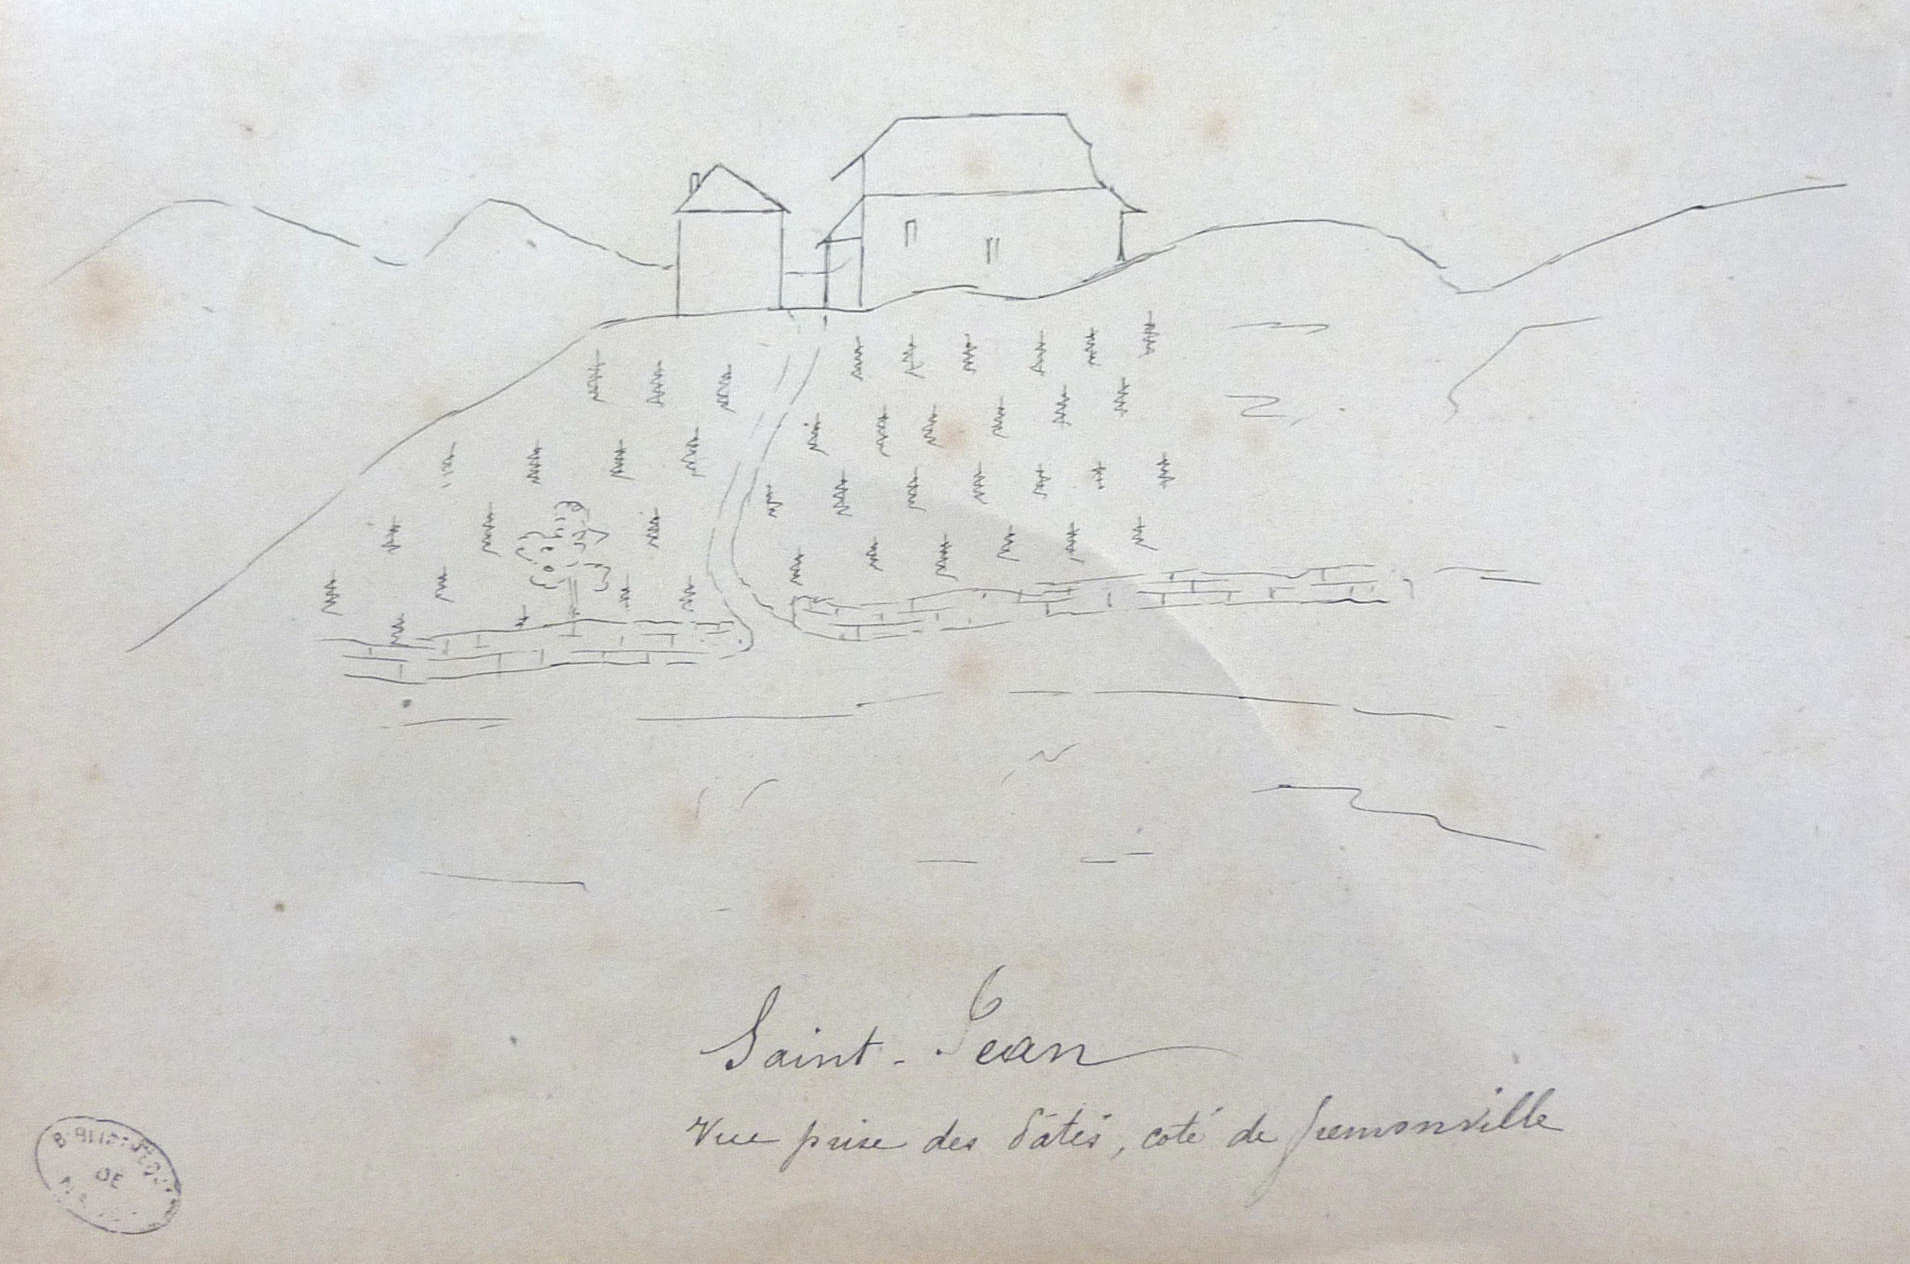 Saint-Jean
Vue prise des Pâtis, coté de Jremonville
BIBLIOTHEQUE
DE